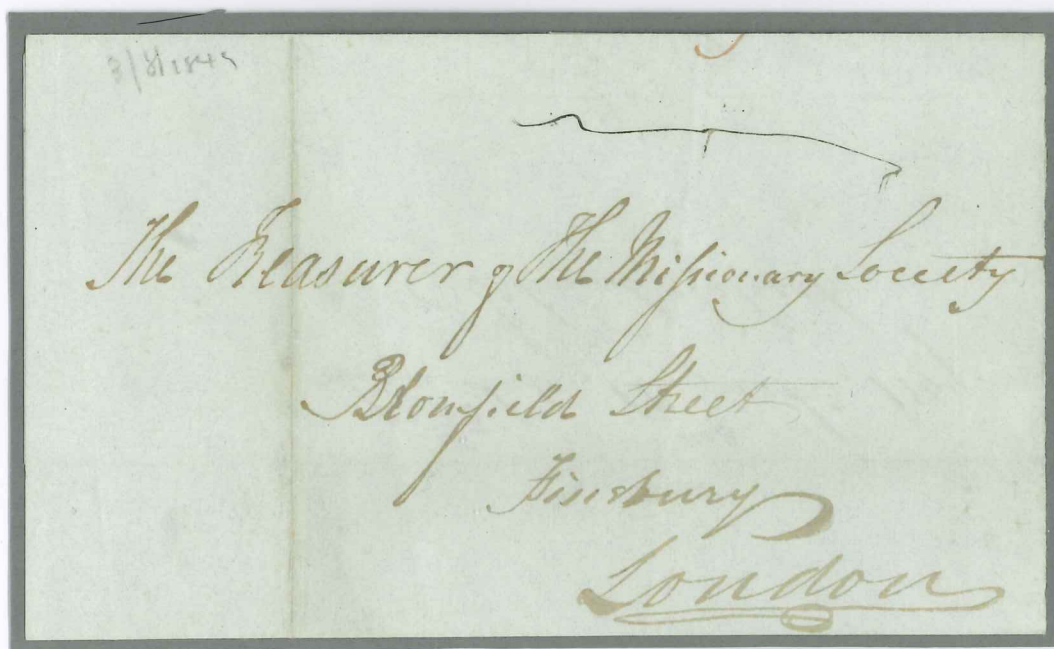 The Treasurer of The Missionary Society
Blomfield Street
Finsbury
London